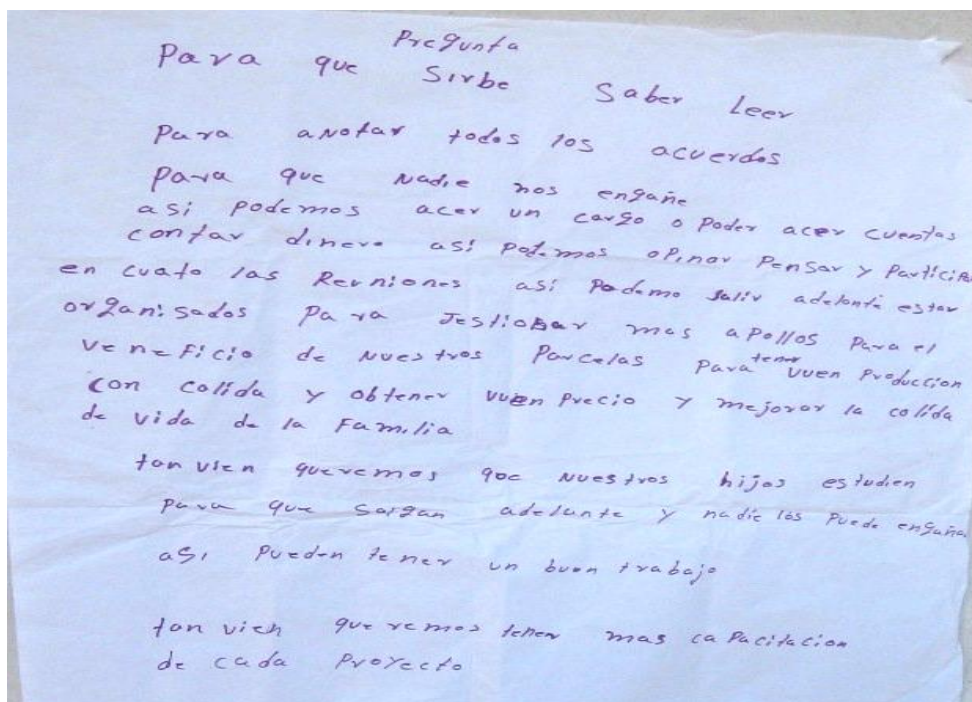 Pregunta
Para que Sirbe Saber Leer
Para anotar todos los acuerdos
Para que Nadie nos engañe
asi podemos acer un cargo o Poder acer cuentas
contar dinero así podemos opinar Pensar y Participar
en cuato las Reuniones así Podemo salir adelante estar
organisados Para mas apollos Para el
veneficio de Nuestros Parcelas Para tener vuen Produccion
con calida y obtener vuen Precio y mejorar la calida
de vida de la Familia
tan vien queremos que Nuestros hijos estudien
Para que Sargan adelante y nadie los Puede engañar
asi Pueden tener un buen trabajo
tan vien queremos tener mas caPacitacion
de cada Proyecto